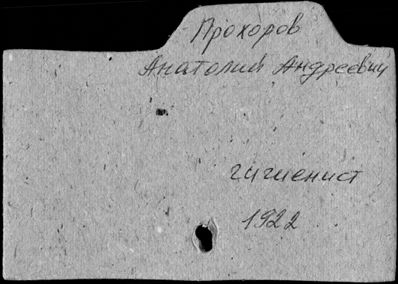 Прохоров
Анатолий Андреевич
гигиенист
1922